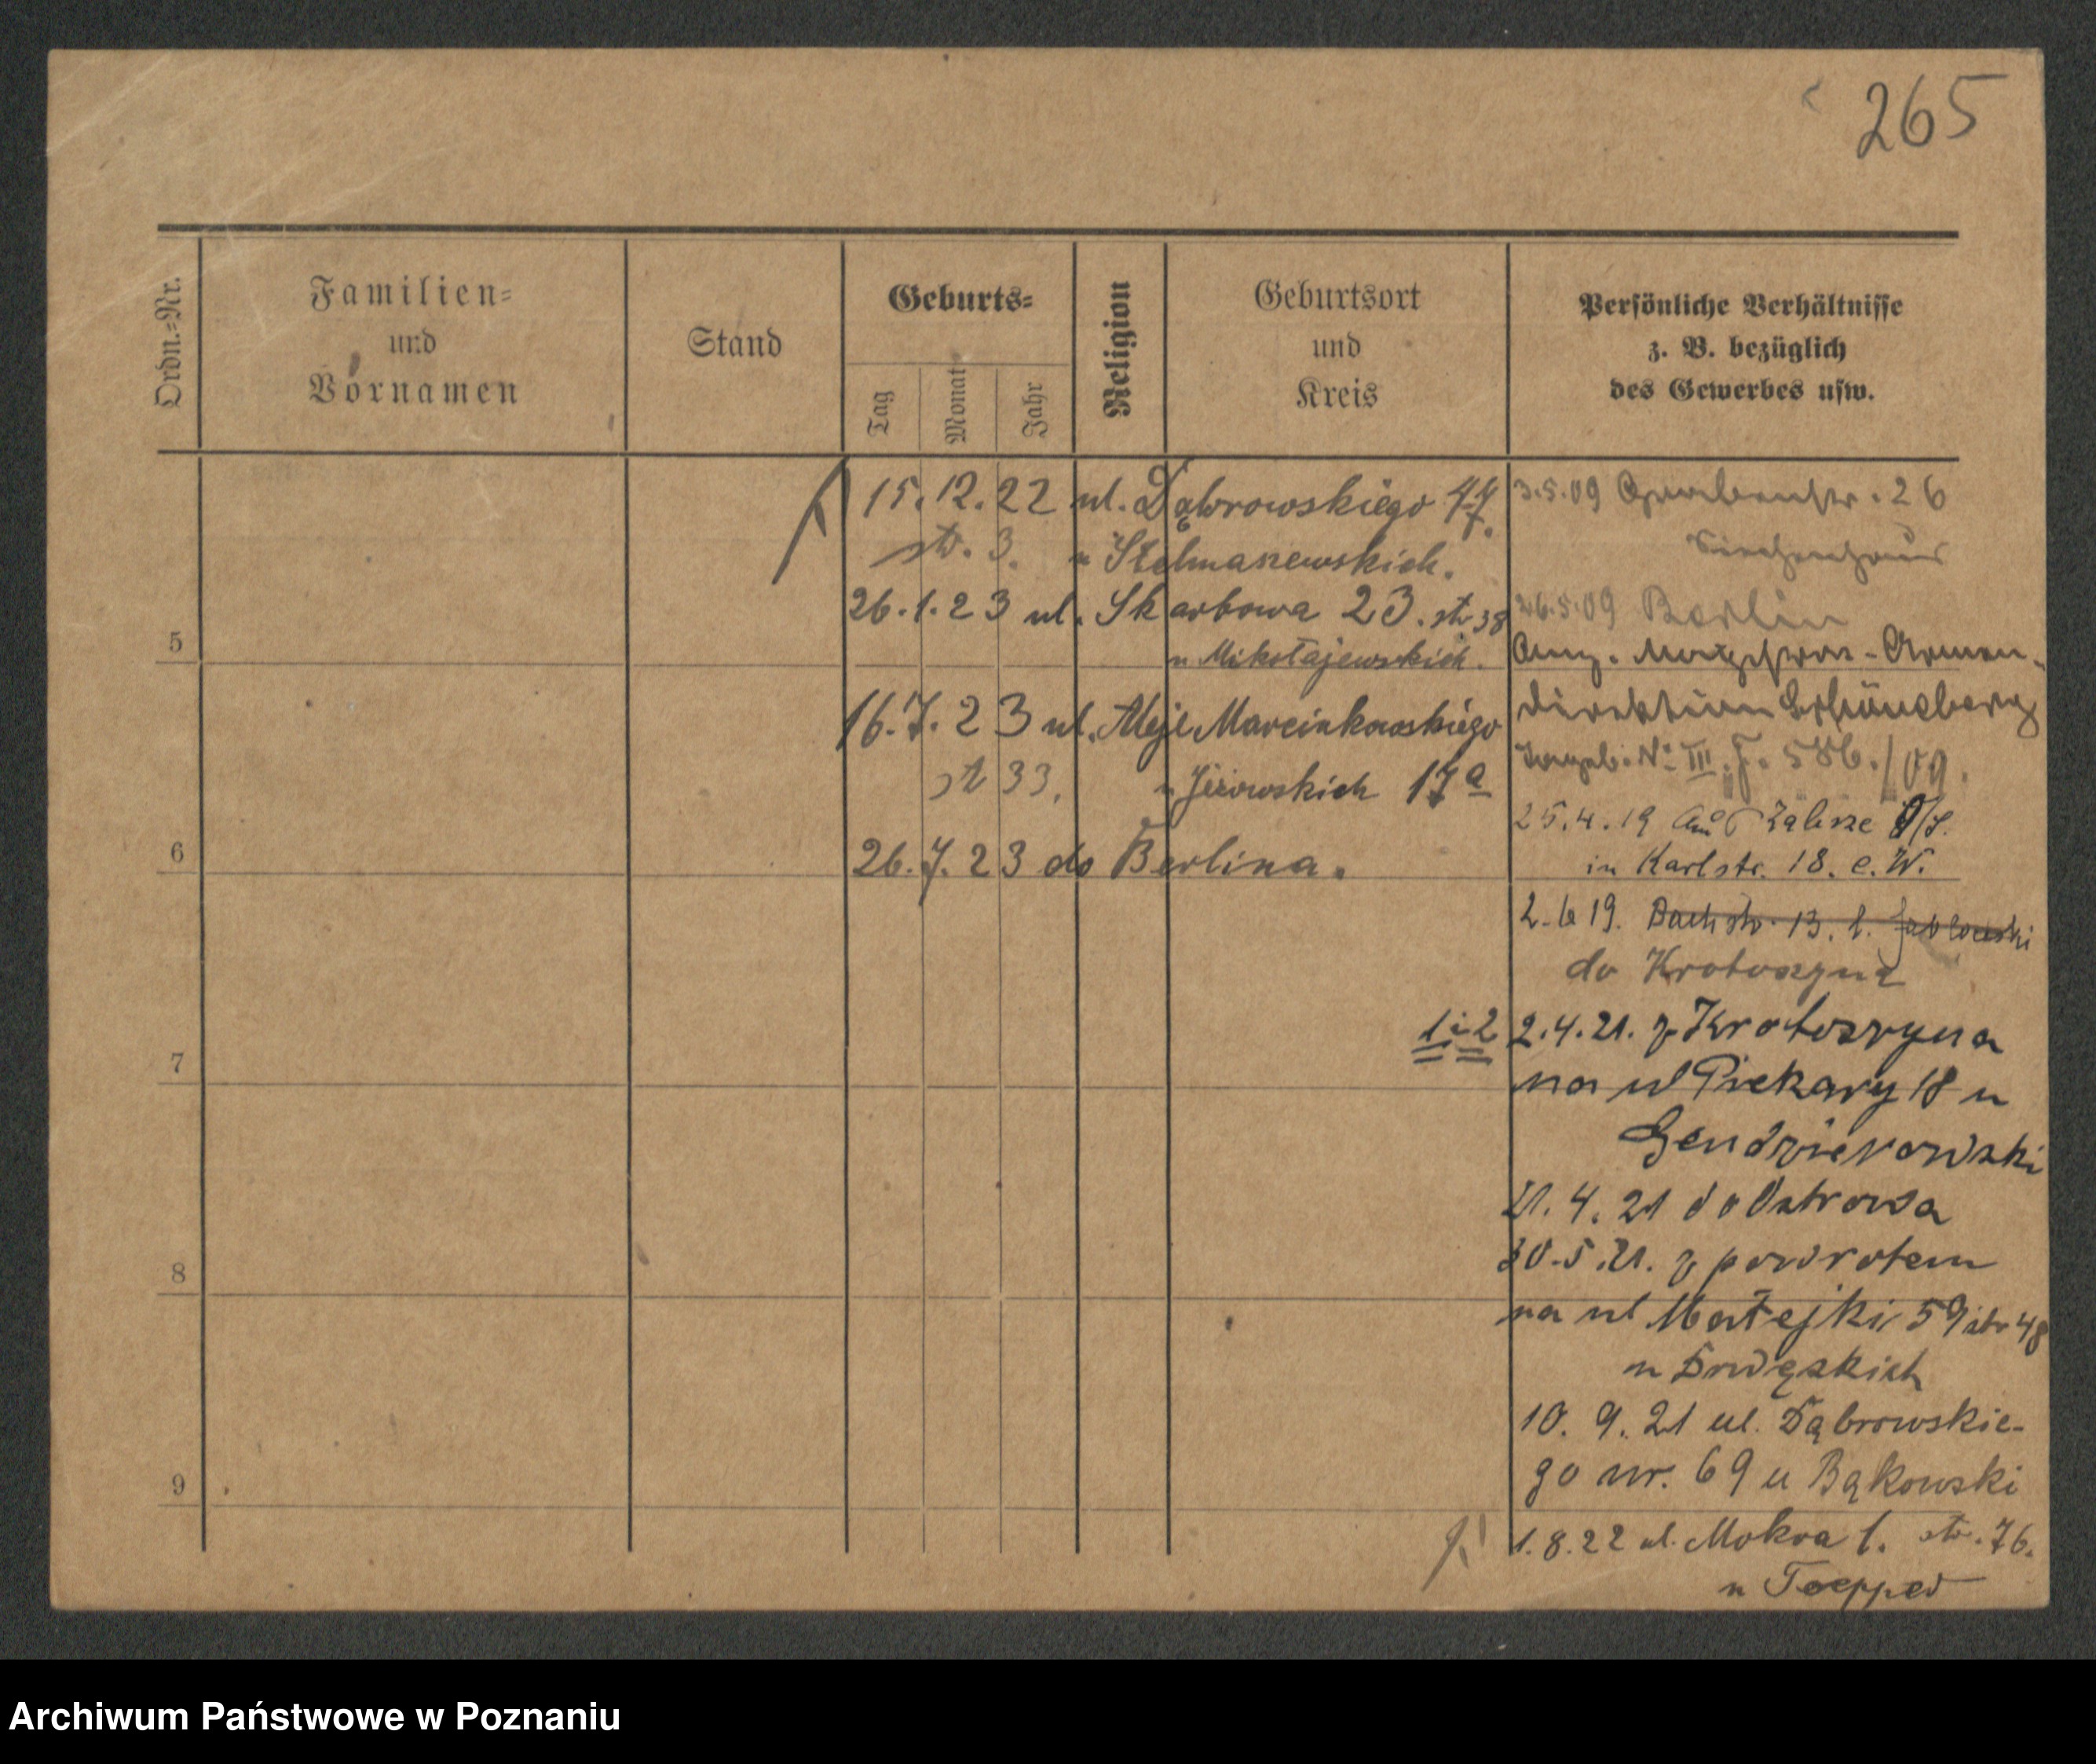 265
Ordn.-Nr.
Familien-
und
Vornamen
Stand
Geburts-
Tag
Monat
Jahr
Religion
Geburtsort
und
Kreis
Persönliche Verhältnisse
z. B. bezüglich
des Gewerbes usw.
15.12.22 ul. Dąbrowskiego
str. 3. u Stelmaszewskich.
26.1.23 ul. Skarbowa 23. str 38
u Mikołajewskich.
16.7.23 ul. Aleje Marcinkowskiego
st 33. u Jeżowskich 17a
26.7.23 do Berlina.
5
6
7
8
9
3.5.09 Grabenstr. 26
Siechenhaus
26.5.09 Berlin
Anz. Magistrat - Armen-
direktion Schöneberg
Tageb. No III. J. 586./09.
25.4.19 Zabrze O/S.
in Karlstr. 18. e. W.
2.6 19. Bachstr. 13. b. Jablonski
do Krotoszyna
1 i 2 2.4.21. z Krotoszyna
na ul Piekary 18 u
Gendzierowski
21.4.21 do Ostrowa
30.5.21. z powrotem
na ul Matejki 59 str 48
u Drwęskich
10. 9. 21 ul. Dąbrowskie-
go nr. 69 u Bąkowski
1.8.22 ul. Mokra 1. str. 76.
u Toepper
Archiwum Państwowe w Poznaniu